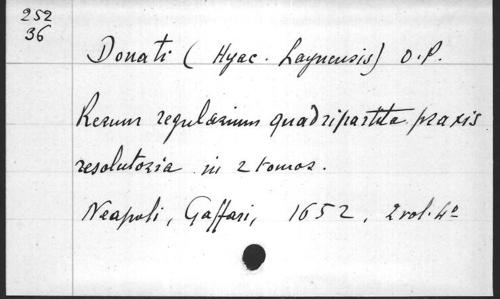 252
36
Donati (Hyac. Laynensis) O.P.
Rerum regularium quadripartita praxis
resolutoria in 2 tomos.
Neapoli, Gaffari, 1652, 2 vol. 4º